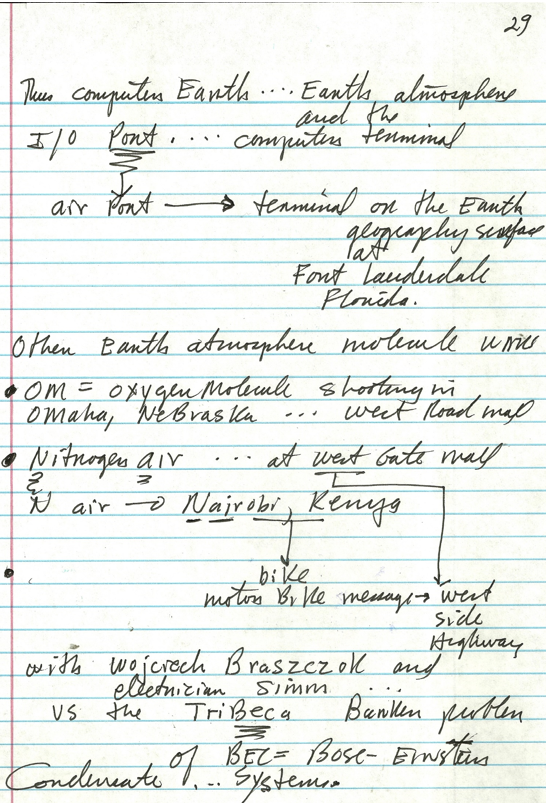 29
Thus computers Earth .... Earth atmosphere
and the
I/O Port .... computers terminal
air Port → terminal on the Earth
geography surface
at
Fort Lauderdale
Florida.
Other Earth atmosphere molecule wires
• OM = oxygen Molecule shooting in
OMaha, NeBraska ... west Road mall
• Nitrogen air ... at west Gate mall
N air → Nairobi, Kenya
•
bike
motor BiKe message → west
side
Highway
with Wojcrech Braszczok and
electrician Simm ...
vs the TriBeca Banker problem
of BEC = Bose-Einstein
Condensate ... Systems.